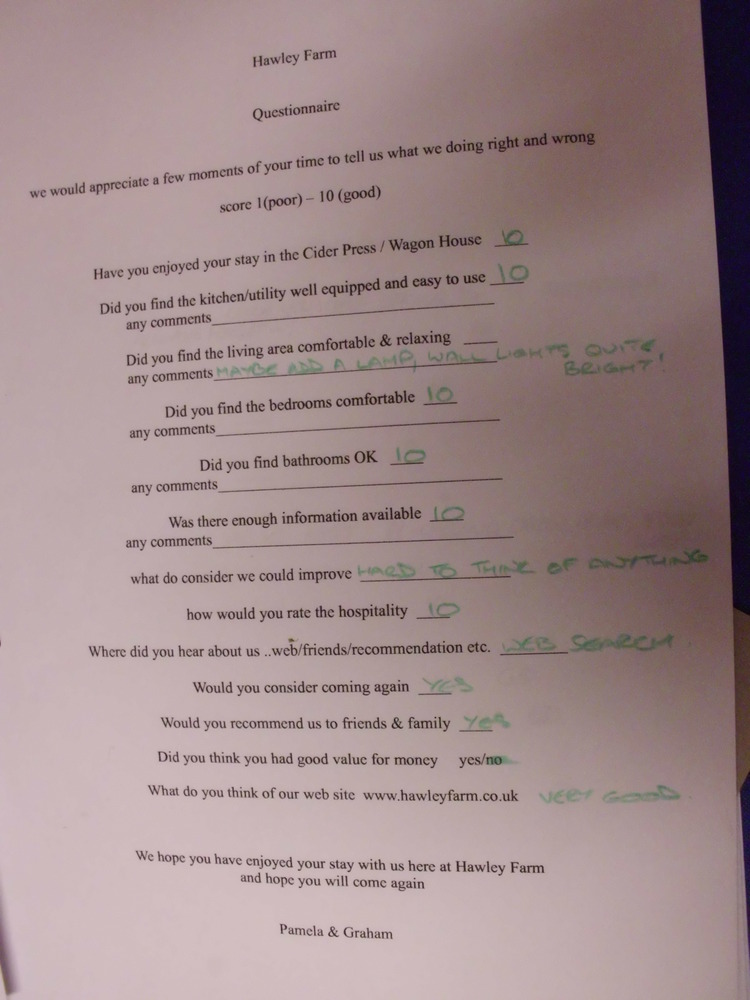 Hawley Farm
Questionnaire
we would appreciate a few moments of your time to tell us what we doing right and wrong
score 1(poor) – 10 (good)
Have you enjoyed your stay in the Cider Press / Wagon House 10
Did you find the kitchen/utility well equipped and easy to use 10
any comments
Did you find the living area comfortable & relaxing
any comments MAYBE ADD A LAMP, WALL LIGHTS QUITE
BRIGHT!
Did you find the bedrooms comfortable 10
any comments
Did you find bathrooms OK 10
any comments
Was there enough information available 10
any comments
what do consider we could improve HARD TO THINK OF ANYTHING
how would you rate the hospitality 10
Where did you hear about us ..web/friends/recommendation etc. WEB SEARCH.
Would you consider coming again YES
Would you recommend us to friends & family YES
Did you think you had good value for money yes/no
What do you think of our web site www.hawleyfarm.co.uk VERY GOOD.
We hope you have enjoyed your stay with us here at Hawley Farm
and hope you will come again
Pamela & Graham